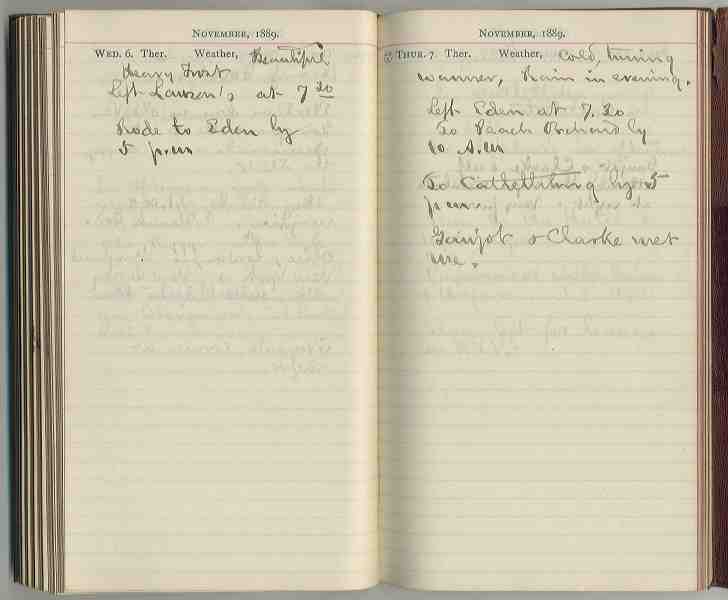 November, 1889.
Wed. 6. Ther. Weather, Beautiful
Heavy Frost
Left Lawson's at 7 30
Rode to Eden by
5 p.m
November, 1889.
Thur. 7. Ther. Weather, Cold, turning
warmer, Rain in evening.
Left Eden at 7.30
To Peach Orchard by
10 A.m
To Catlettsburg by 5
p.m
& Clarke met
me.